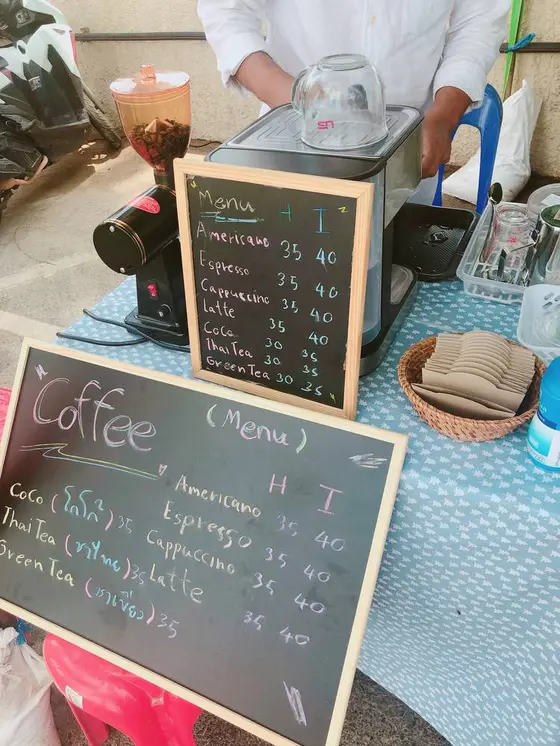 Menu H I
Americano 35 40
Espresso 35 40
Cappuccino 35 40
Latte 35 40
CoCo 30 35
ThaiTea 30 35
GreenTea 30 35
Coffee (Menu)
H I
Americano 35 40
Espresso 35 40
Cappuccino 35 40
Latte 35 40
CoCo (โกโก้) 35
ThaiTea (ชาไทย) 35
GreenTea (ชาเขียว) 35